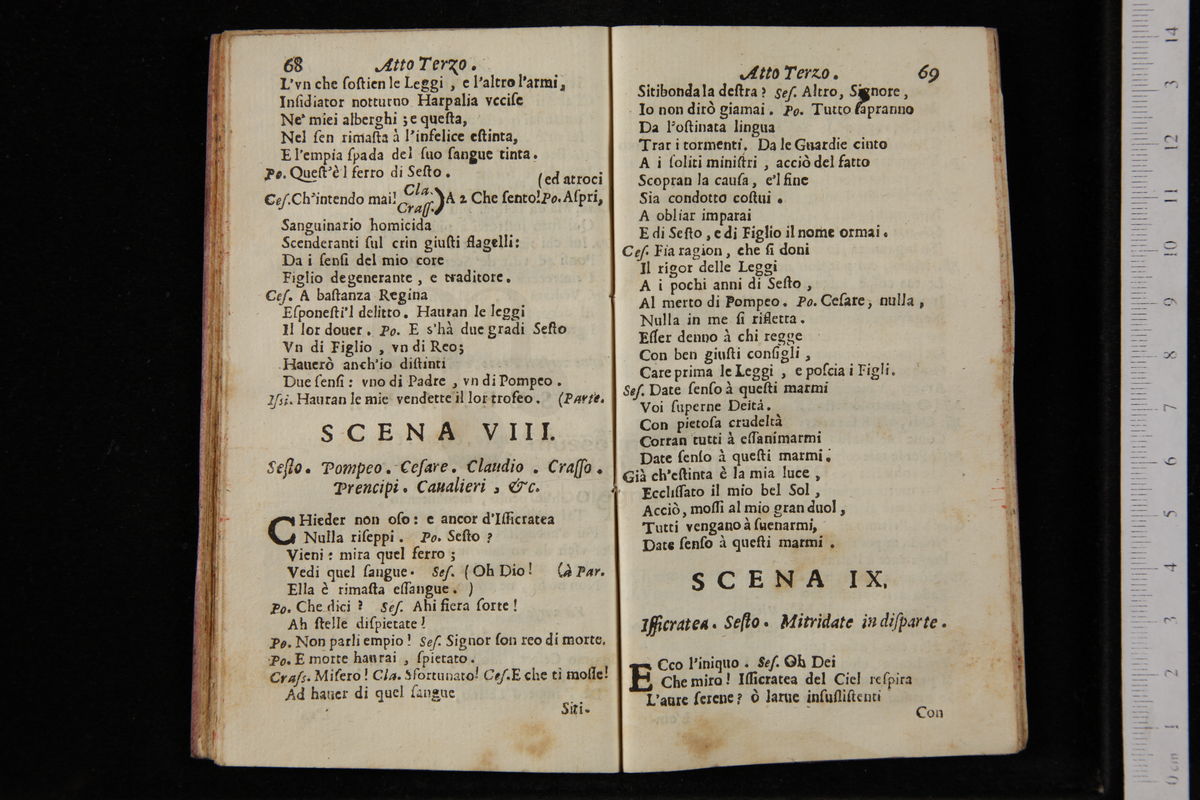 68 Atto Terzo.
L'vn che ſoſtien le Leggi, e l'altro l'armi,
Inſidiator notturno Harpalia vcciſe
Ne' miei alberghi; e queſta,
Nel ſen rimaſta à l'infelice eſtinta,
E l'empia ſpada del ſuo ſangue tinta.
Po. Queſt'è l ferro di Seſto.
(ed atroci
Ceſ. Ch'intendo mai! Cla. Craſſ.) A 2 Che ſento! Po. Aſpri,
Sanguinario homicida
Scenderanti ſul crin giuſti flagelli:
Da i ſenſi del mio core
Figlio degenerante, e traditore.
Ceſ. A baſtanza Regina
Eſponeſti'l delitto. Hauran le leggi
Il lor douer. Po. E s'hà due gradi Seſto
Vn di Figlio, vn di Reo;
Hauerò anch'io diſtinti
Due ſenſi: vno di Padre, vn di Pompeo.
Iſſi. Hauran le mie vendette il lor trofeo. (Parte.
SCENA VIII.
Seſto. Pompeo. Ceſare. Claudio. Craſſo.
Prencipi. Caualieri, &c.
CHieder non oſo: e ancor d'Iſſicratea
Nulla riſeppi. Po. Seſto?
Vieni: mira quel ferro;
Vedi quel ſangue. Seſ. (Oh Dio! (à Par.
Ella è rimaſta eſſangue.)
Po. Che dici? Seſ. Ahi fiera ſorte!
Ah ſtelle diſpietate!
Po. Non parli empio! Seſ. Signor ſon reo di morte.
Po. E morte haurai, ſpietato.
Craſs. Miſero! Cla. Sfortunato! Ceſ. E che ti moſſe!
Ad hauer di quel ſangue
Siti-
Atto Terzo. 69
Sitibonda la deſtra? Seſ. Altro, Signore,
Io non dirò giamai. Po. Tutto ſapranno
Da l'oſtinata lingua
Trar i tormenti. Da le Guardie cinto
A i ſoliti miniſtri, acciò del fatto
Scopran la cauſa, e'l fine
Sia condotto coſtui.
A obliar imparai
E di Seſto, e di Figlio il nome ormai.
Ceſ. Fia ragion, che ſi doni
Il rigor delle Leggi
A i pochi anni di Seſto,
Al merto di Pompeo. Po. Ceſare, nulla,
Nulla in me ſi rifletta.
Eſſer denno à chi regge
Con ben giuſti conſigli,
Care prima le Leggi, e poſcia i Figli.
Seſ. Date ſenſo à queſti marmi
Voi ſuperne Deità.
Con pietoſa crudeltà
Corran tutti à eſſanimarmi
Date ſenſo à queſti marmi.
Già ch'eſtinta è la mia luce,
Eccliſſato il mio bel Sol,
Acciò, moſſi al mio gran duol,
Tutti vengano à ſuenarmi,
Date ſenſo à queſti marmi.
SCENA IX.
Iſſicratea. Seſto. Mitridate in diſparte.
ECco l'iniquo. Seſ. Oh Dei
Che miro! Iſſicratea del Ciel reſpira
L'aure ſerene? ò larue inſuſſiſtenti
Con
14
13
12
11
10
9
8
7
6
5
4
3
2
1
0 cm